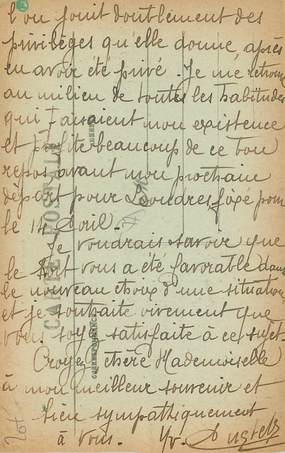 l'on jouit doublement des
privilèges qu'elle donne, après
en avoir été privé. Je me retrouve
au milieu de toutes les habitudes
qui faisaient mon existence
et profite beaucoup de ce bon
repos avant mon prochain
départ pour Londres, fixé pour
le 14 Avril.
Je voudrais savoir que
le sort vous a été favorable dans
le nouveau choix d'une situation
et je souhaite vivement que
vous soyez satisfaite à ce sujet.
Croyez chère Mademoiselle
à mon meilleur souvenir et
bien sympathiquement
à vous. Yv.
CARTE POSTALE
CORRESPONDANCE